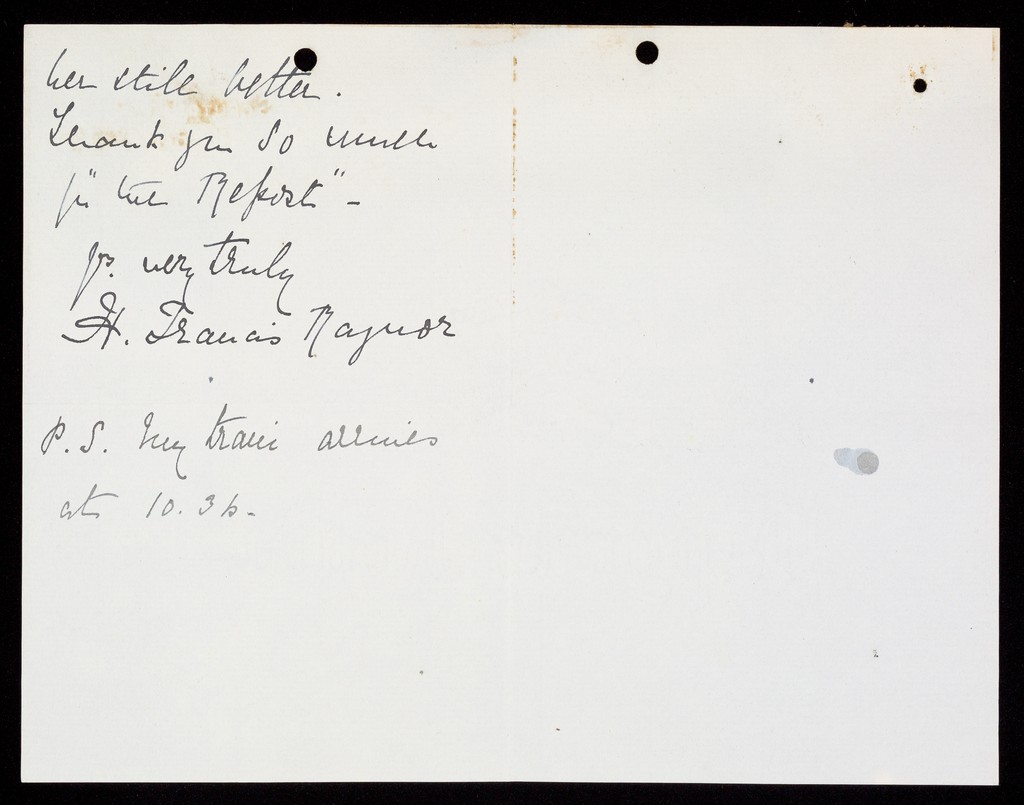 her still better.
Thank you so much
for "the Report" -
yrs. very truly
H. Francis Raynor
P.S. My train arrives
at 10.36-